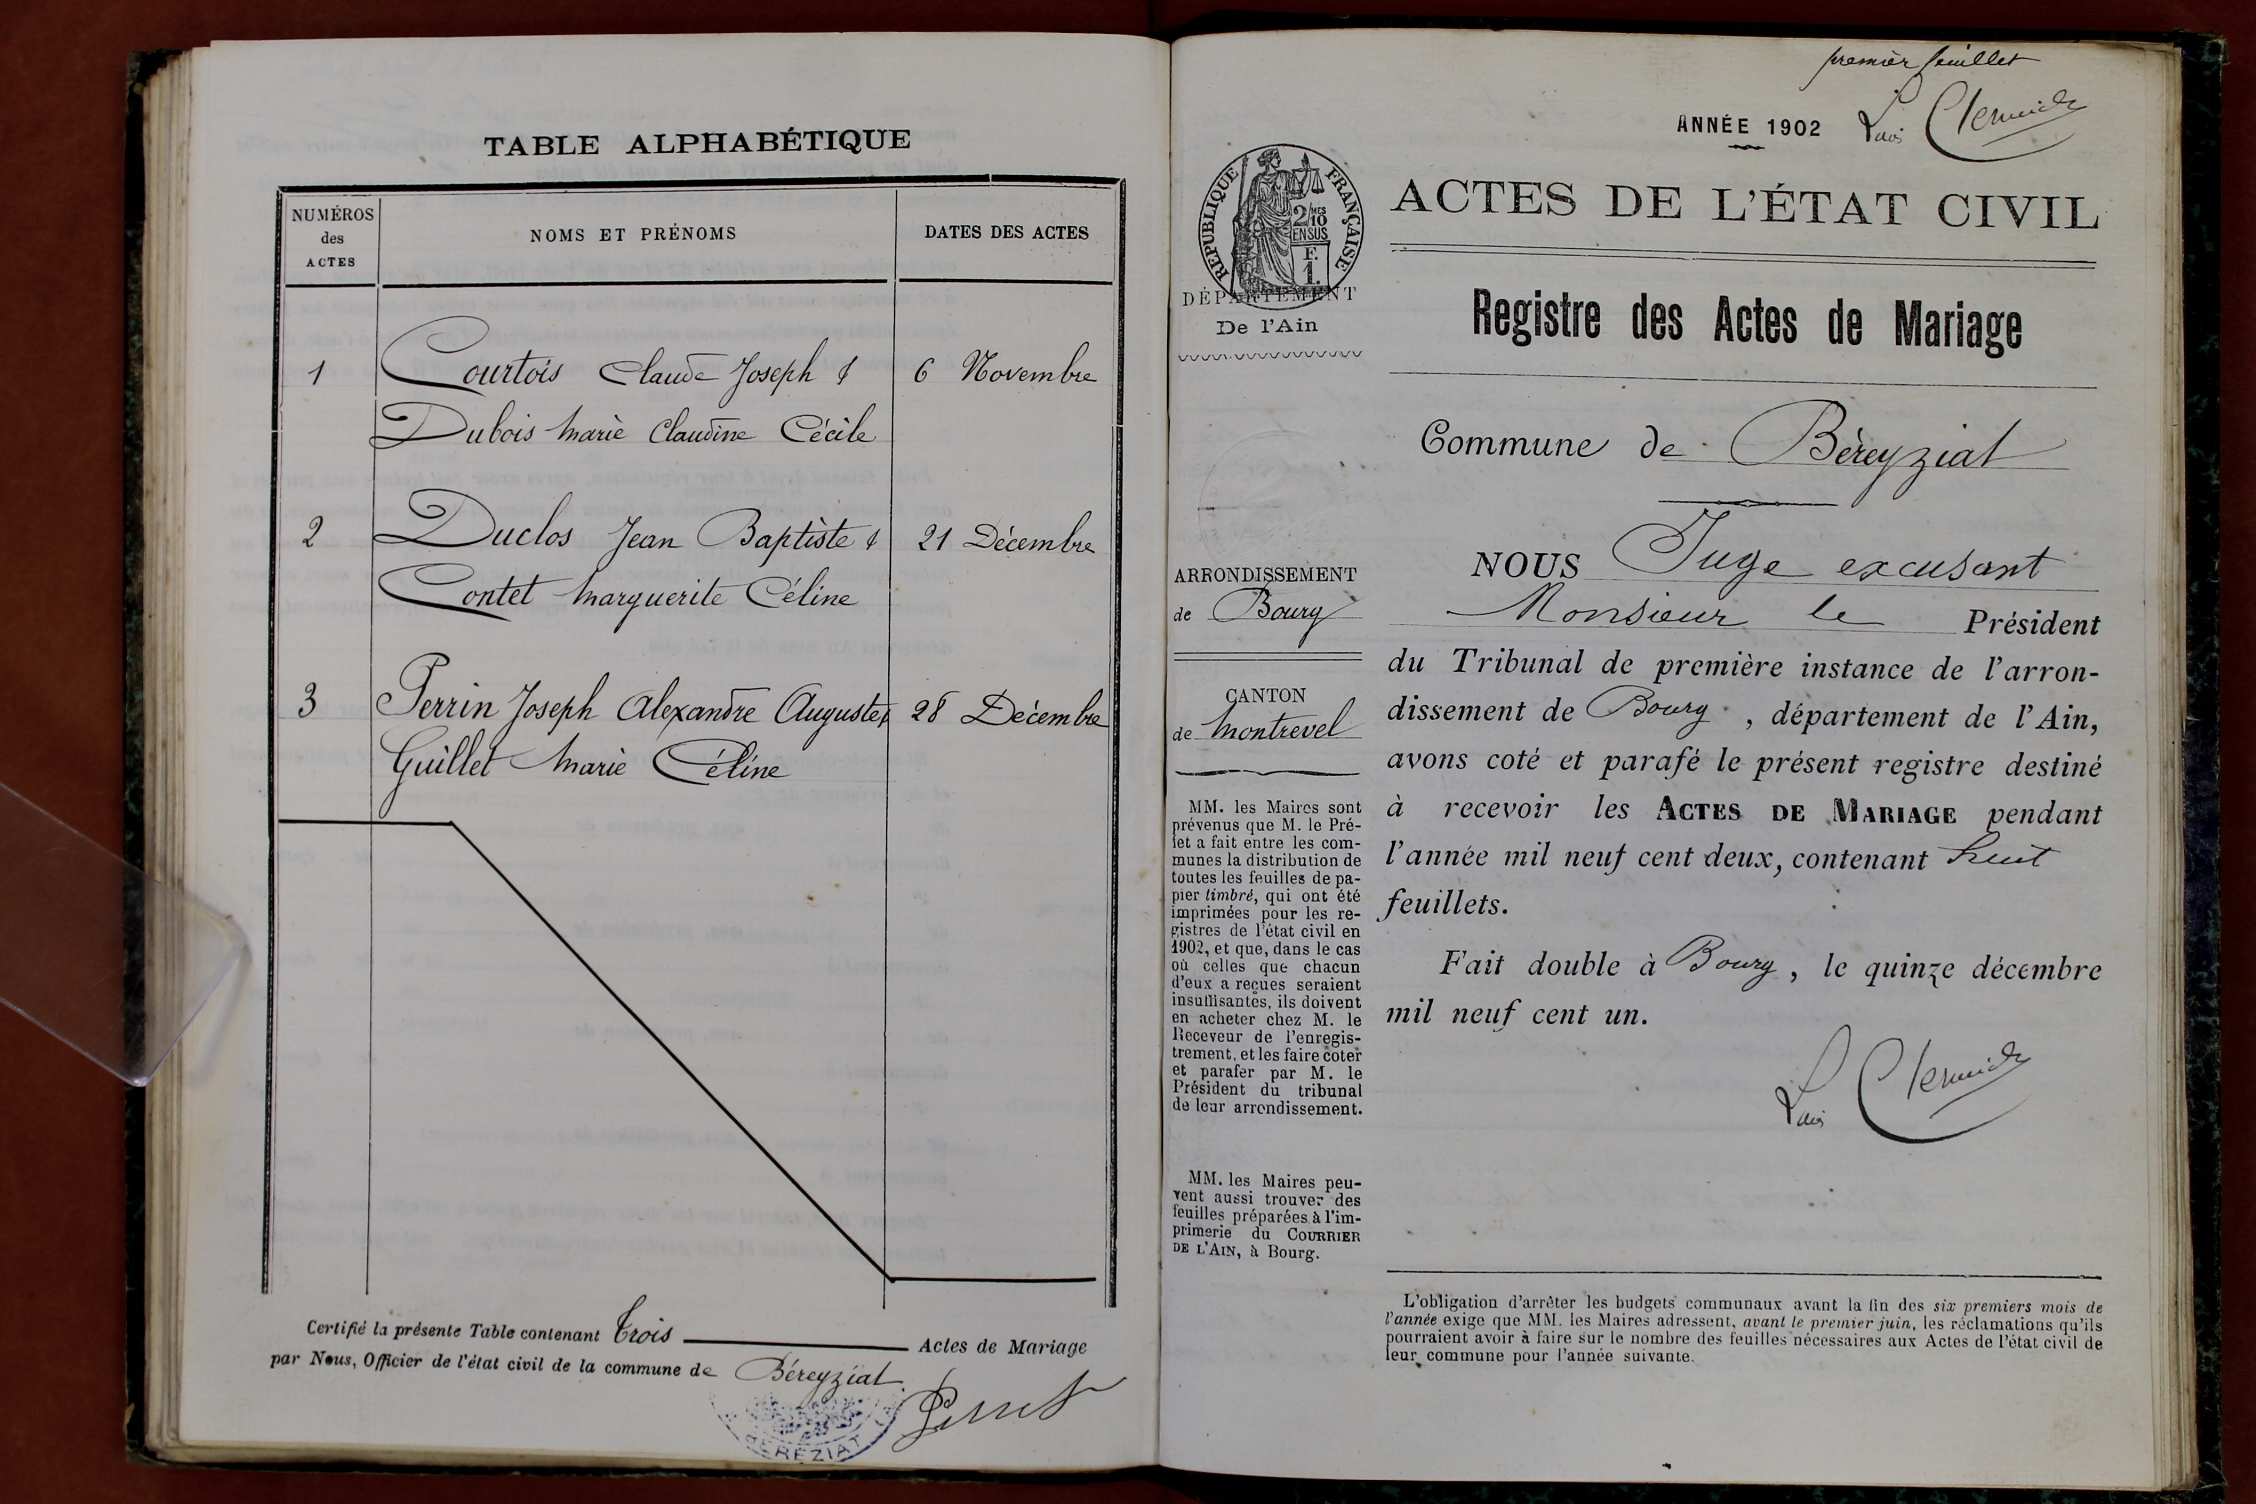 TABLE ALPHABÉTIQUE
NUMÉROS
des
ACTES
NOMS ET PRÉNOMS
DATES DES ACTES
1 Courtois Claude Joseph & 6 Novembre
Dubois Marie Claudine Cécile
2 Duclos Jean Baptiste & 21 Décembre
Contet Marguerite Céline
3 Perrin Joseph Alexandre Auguste & 28 Décembre
Guillet Marie Céline
Certifié la présente Table contenant Trois Actes de Mariage
par Nous, Officier de l'état civil de la commune de Béreyziat
BEREZIAT
premier feuillet
ANNÉE 1902
RÉPUBLIQUE FRANÇAISE
2/10 MES
EN SUS
F.
1.
DÉPARTEMENT
De l'Ain
ARRONDISSEMENT
de Bourg
CANTON
de Montrevel
MM. les Maires sont
prévenus que M. le Pré-
fet a fait entre les com-
munes la distribution de
toutes les feuilles de pa-
pier timbré, qui ont été
imprimées pour les re-
gistres de l'état civil en
1902, et que, dans le cas
où celles que chacun
d'eux a reçues seraient
insuffisantes, ils doivent
en acheter chez M. le
Receveur de l'enregis-
trement, et les faire coter
et parafer par M. le
Président du tribunal
de leur arrondissement.
MM. les Maires peu-
vent aussi trouver des
feuilles préparées à l'im-
primerie du COURRIER
DE L'AIN, à Bourg.
ACTES DE L'ÉTAT CIVIL
Registre des Actes de Mariage
Commune de Béreyziat
NOUS Juge excusant
Monsieur le Président
du Tribunal de première instance de l'arron-
dissement de Bourg, département de l'Ain,
avons coté et parafé le présent registre destiné
à recevoir les ACTES DE MARIAGE pendant
l'année mil neuf cent deux, contenant huit
feuillets.
Fait double à Bourg, le quinze décembre
mil neuf cent un.
L'obligation d'arrêter les budgets communaux avant la fin des six premiers mois de
l'année exige que MM. les Maires adressent, avant le premier juin, les réclamations qu'ils
pourraient avoir à faire sur le nombre des feuilles nécessaires aux Actes de l'état civil de
leur commune pour l'année suivante.